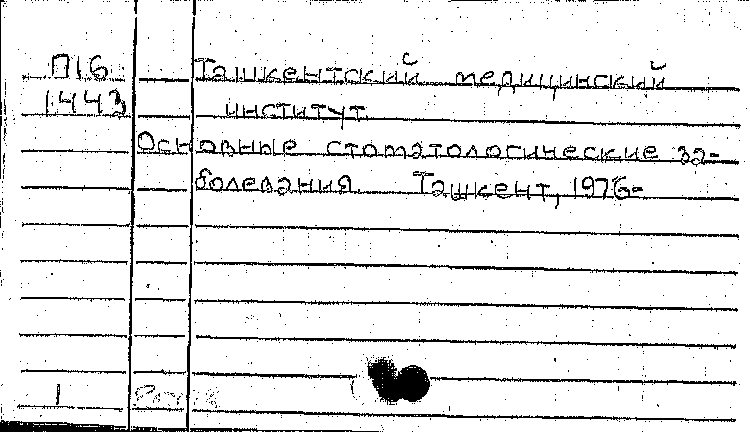 П16 Ташкентский медицинский
1443 институт.
Основные стоматологические за-
болевания. Ташкент, 1976-
1